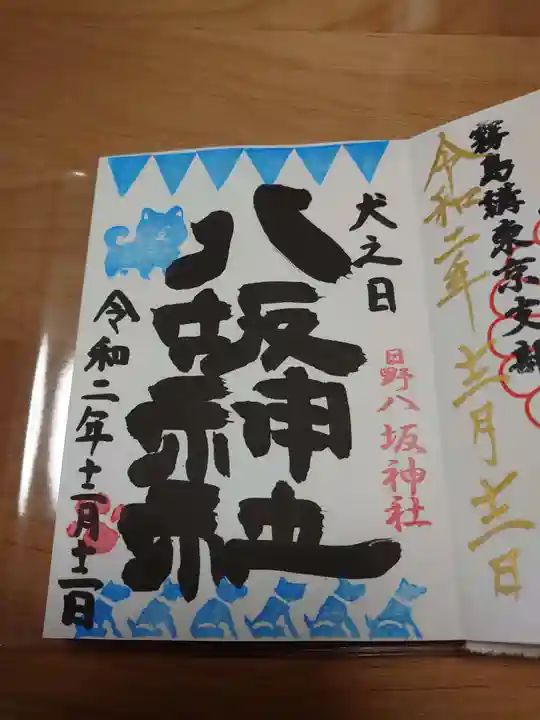 犬之日
八坂神社
日野八坂神社
令和二年十二月十二日
霧島講東京支部
令和二年十二月十二日